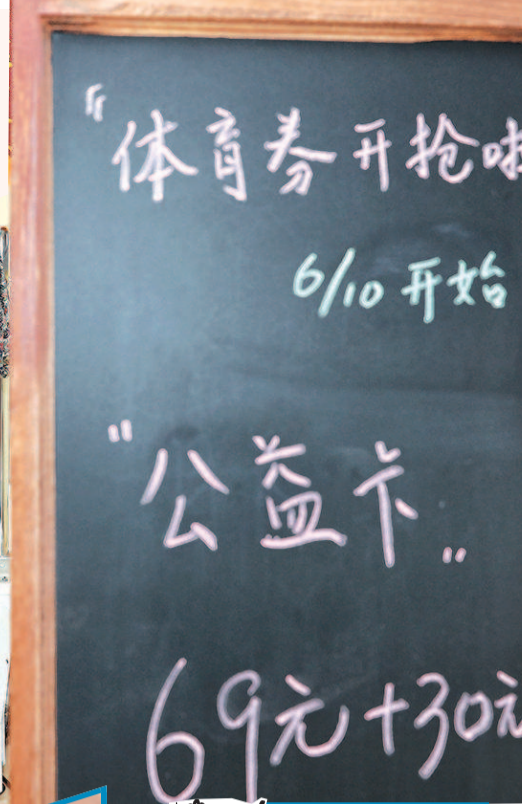 “体育券开抢啦
6/10 开始
“公益卡”
69元+30元